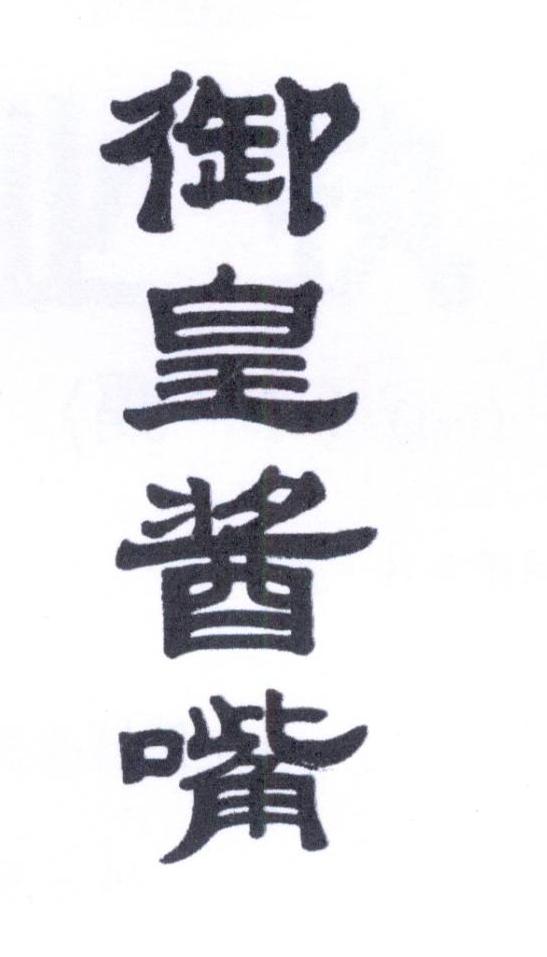 御皇酱嘴